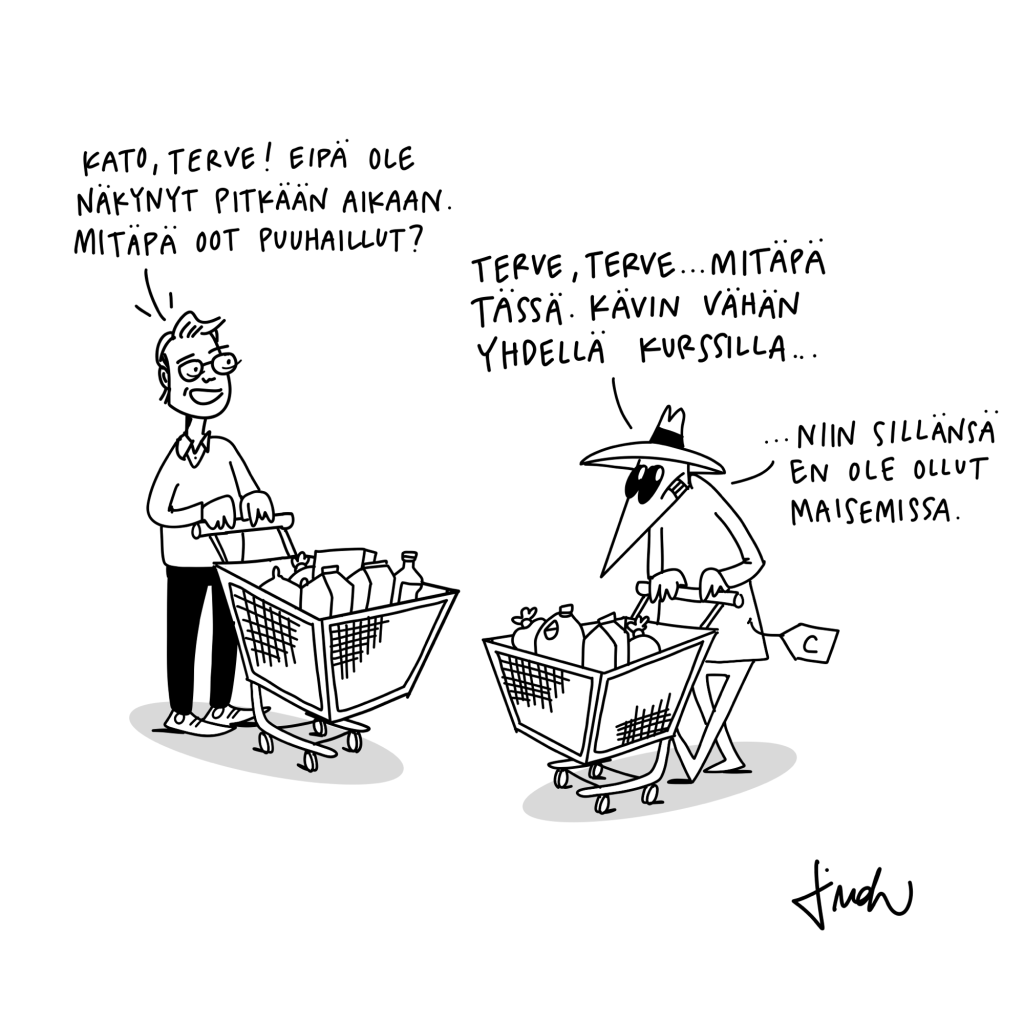 KATO, TERVE! EIPÄ OLE
NÄKYNYT PITKÄÄN AIKAAN.
MITÄPÄ OOT PUUHAILLUT?
TERVE, TERVE... MITÄPÄ
TÄSSÄ. KÄVIN VÄHÄN
YHDELLÄ KURSSILLA...
...NIIN SILLÄNSÄ
EN OLE OLLUT
MAISEMISSA.
C